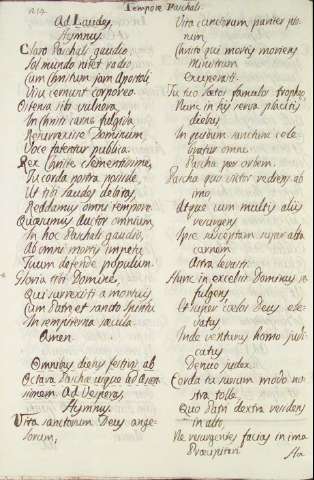 Tempore Paschali.
Ad Laudes,
Hymnus.
Claro Paschali gaudio,
Sol mundo nitet radio,
Cum Christum jam Apostoli
Visu cernunt corporeo.
Ostensa sibi vulnera,
In Christi carne fulgida
Resurrexisse Dominum,
Voce fatentur publica.
Rex Christe clementissime,
Tu corda nostra posside,
Ut tibi laudes debitas,
Reddamus omni tempore.
Quæsumus auctor omnium,
In hoc Paschali gaudio,
Ab omni mortis impetu
Tuum defende populum.
Gloria tibi Domine,
Qui surrexisti a mortuis,
Cum Patre et sancto Spiritu
In sempiterna sæcula.
Amen.
Omnibus diebus festivis ab
Octava Paschæ usque ad Ascen
sionem Ad Vesperas,
Hymnus.
Vita sanctorum Deus ange-
lorum,
Vita cunctorum pariter pio-
rum,
Christe qui mortis moriens
Ministrum
Exuperasti.
Tu tuo lætos famulos trophæo
Nunc in his serva placitis
diebus,
In quibus sanctum cele-
bratur omne
Pascha per orbem.
Pascha quo victor rediens ab
imo
Atque cum multis aliis
resurgens
Ipse susceptam super alta
carnem
Astra levasti.
Nunc in excelsis Dominus re-
fulgens,
Et super cœlos Deus ele-
vatus
Inde venturus homo judi-
catus
Denuo judex.
Corda tu sursum modo no-
stra tolle,
Quo Patri dextra residens
in alto,
Ne resurgentes facias in ima
Præcipitari.